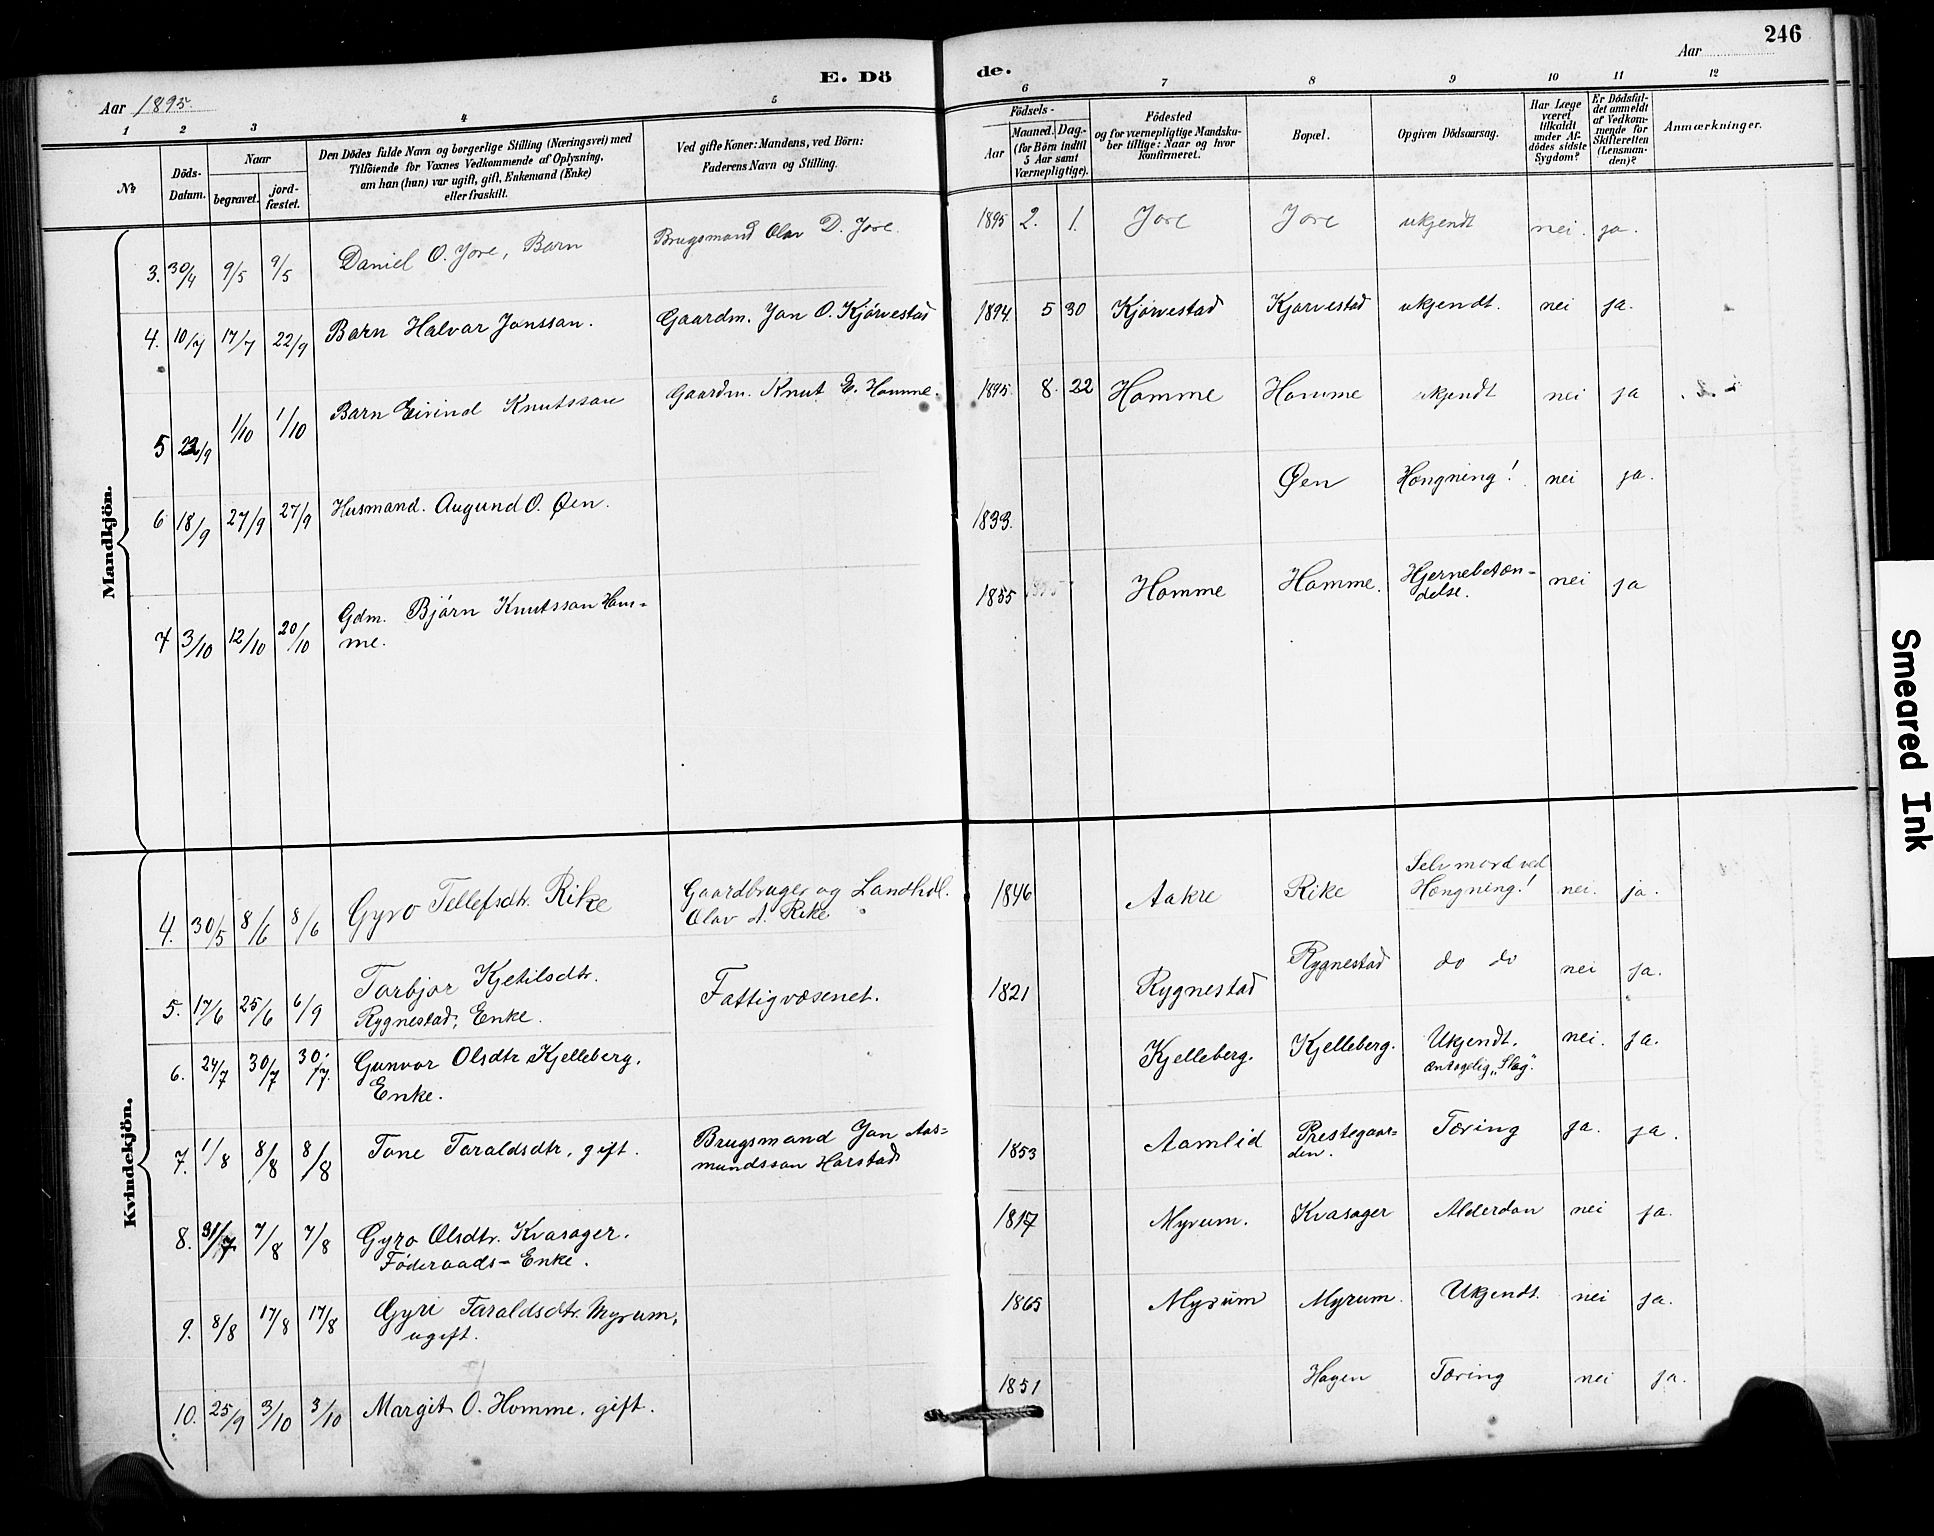 246
E. Dö de.
Aar 1895. Aar
1 2 3 4 5 6 7 8 9 10 11 12
No
Döds-Datum.
Naar
begravet.
jord-fæstet.
Den Dödes fulde Navn og borgerlige Stilling (Næringsvei) med
Tilföiende for Voxnes Vedkommende af Oplysning,
om han (hun) var ugift, gift, Enkemand (Enke)
eller fraskilt.
Ved gifte Koner: Mandens, ved Börn:
Faderens Navn og Stilling.
Födsels-
Aar
Maaned. Dag.
(for Börn indtil
5 Aar samt
Værnepligtige).
Födested
og for værnepligtige Mandska-
ber tillige: Naar og hvor
konfirmeret.
Bopæl.
Opgiven Dödsaarsag.
Har Læge
været
tilkaldt
under Af-
dödes sidste
Sygdom?
Er Dödsfal-
det anmeldt
af Vedkom-
mende for
Skifteretten
(Lensman-
den)?
Anmærkninger.
Mandkjön.
3. 30/4 9/5 9/5 Daniel O. Jore, Barn Brugsmand Olav D. Jore. 1895 2. 1. Jore Jore ukjendt nei. ja.
4. 10/7 17/7 22/9 Barn Halvar Jonsson. Gaardm. Jon O. Kjörvestad 1894. 5 30 Kjörvestad Kjorvestad ukjendt. nei ja.
5 22/9 1/10 1/10 Barn Eivind Knutsson Gaardm. Knut E. Homme. 1895. 8. 22 Homme Homme ukjendt nei ja
6 18/9 27/9 27/9 Husmand. Augund O. Øen. 1833. Øen Hængning! nei ja.
7 3/10 12/10 20/10 Gdm. Björn Knutsson Hom-
me. 1855 Homme Homme. Hjernebetæn-
delse. nei ja
Kvindekjön.
4. 30/5 8/6 8/6 Gyro Tellefsdtr. Rike Gaardbruger og Landhdl.
Olav A. Rike 1846 Aakre Rike Selvmord ved
Hængning! nei. ja.
5. 17/6 25/6 6/9 Torbjor Kjetilsdtr.
Rygnestad, Enke. Fattigvæsenet. 1821 Rygnestad Rygnestad do do nei ja.
6. 24/7 30/7 30/7. Gunvor Olsdtr Kjelleberg,
Enke. Kjelleberg. Kjelleberg. Ukjendt.
antagelig "Slag". nei. ja.
7. 1/8 8/8 8/8 Tone Taraldsdtr, gift. Brugsmand Jon Aas-
mundsson Harstad 1853 Aamlid Prestegaar-
den. Tæring ja. ja.
8. 31/7 7/8 7/8 Gyro Olsdtr. Kvasager.
Föderaads-Enke. 1817 Myrum. Kvasager Alderdom nei ja.
9. 8/8 17/8 17/8 Gyri Taraldsdtr. Myrum,
ugift. 1865 Myrum Myrum. Ukjendt. nei ja.
10. 25/9 3/10 3/10 Margit O. Homme. gift. 1851 Hagen Tæring nei ja.
Smeared Ink